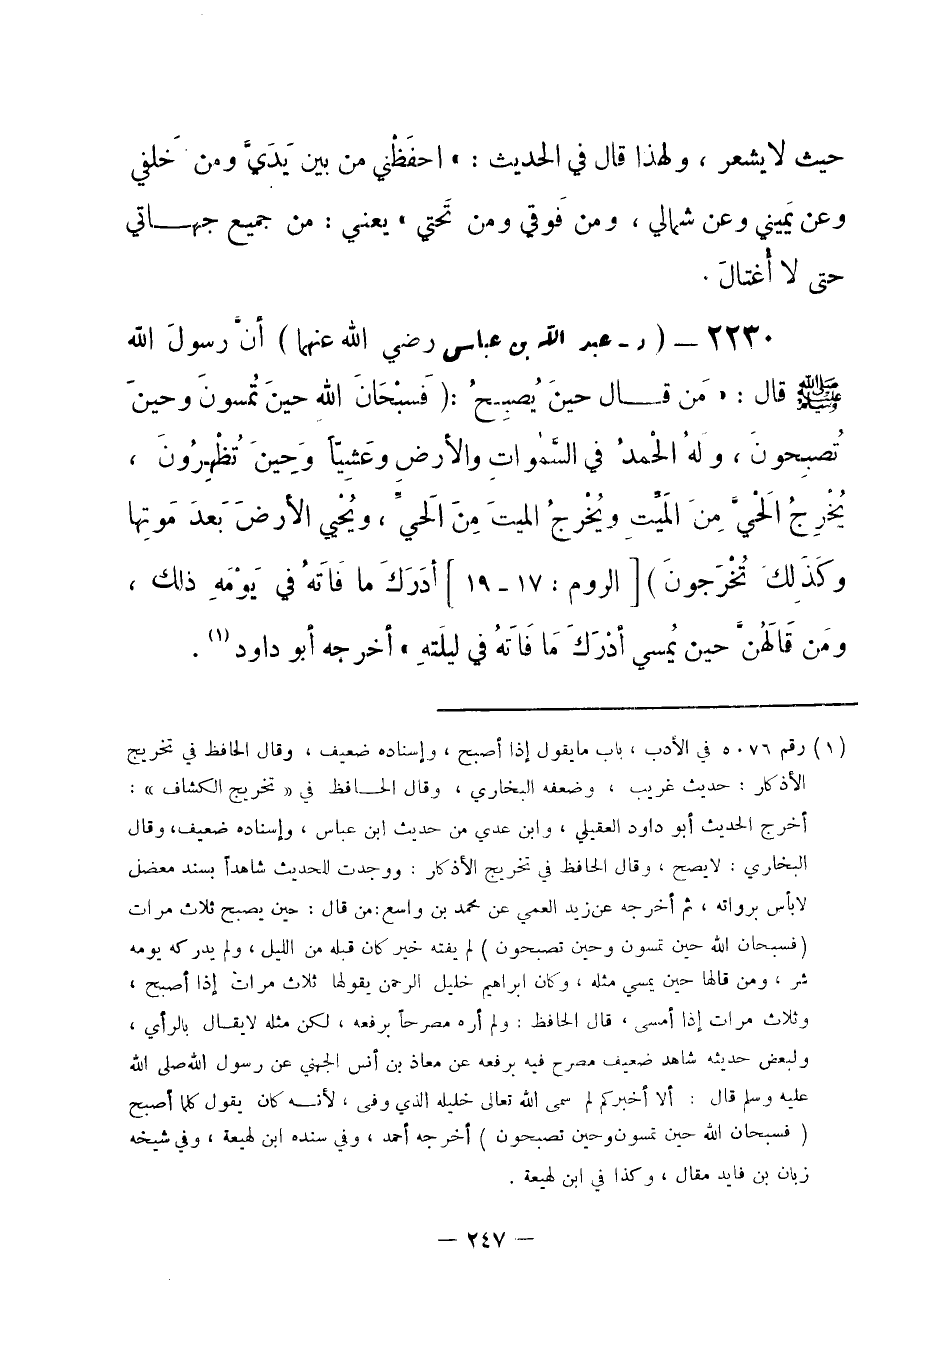 حيث لا يشعر ، ولهذا قال في الحديث : « احفَظْني من بين يَدَيَّ ومن خَلفي
وعن يَميني وعن شمالي ، ومن فَوقي ومن تَحتي » يعني : من جميع جهـــاتي
حتى لا أُغتالَ .
٢٢٣٠ — ( د - عبد الله بن عباس رضي الله عنهما ) أنَّ رسولَ الله
ﷺ قال : « مَن قـــال حينَ يُصبِـحُ : ( فَسبْحَانَ اللهِ حينَ تُمسونَ وحينَ
تُصبِحونَ ، وَلهُ الْحمدُ في السَّمٰواتِ والأرضِ وعَشيّاً وَحِينَ تُظْهِرُونَ ،
يُخْرِجُ الْحَيَّ مِنَ الْمَيِّتِ ويُخْرِجُ الميتَ مِنَ الْحَيِّ ، ويُحْيي الأرضَ بَعدَ مَوتِها
وكَذَلِكَ تُخْرَجونَ ) [ الروم : ١٧ - ١٩ ] أدْرَكَ ما فَاتَهُ في يَوْمَهِ ذلك ،
ومَن قَالَهُنَّ حين يُمسي أدْرَكَ مَا فَاتَهُ في ليلَتهِ » أخرجه أبو داود (١) .
(١) رقم ٥٠٧٦ في الأدب ، باب ما يقول إذا أصبح ، وإسناده ضعيف ، وقال الحافظ في تخريج
الأذكار : حديث غريب ، وضعفه البخاري ، وقال الحـــافظ في « تخريج الكشاف » :
أخرج الحديث أبو داود العقيلي ، وابن عدي من حديث ابن عباس ، وإسناده ضعيف، وقال
البخاري : لايصح ، وقال الحافظ في تخريج الأذكار : ووجدت للحديث شاهداً بسند معضل
لابأس برواته ، ثم أخرجه عن زيد العمي عن محمد بن واسع: من قال : حين يصبح ثلاث مرات
( فسبحان الله حين تمسون وحين تصبحون ) لم يفته خير كان قبله من الليل ، ولم يدركه يومه
شر ، ومن قالها حين يمسي مثله ، وكان ابراهيم خليل الرحمن يقولها ثلاث مرات إذا أصبح ،
وثلاث مرات إذا أمسى ، قال الحافظ : ولم أره مصرحاً برفعه ، لكن مثله لايقـــال بالرأي ،
ولبعض حديثه شاهد ضعيف مصرح فيه برفعه عن معاذ بن أنس الجهني عن رسول الله صلى الله
عليه وسلم قال : ألا أخبركم لم سمى الله تعالى خليله الذي وفى ، لأنـــه كان يقول كلما أصبح
( فسبحان الله حين تمسون وحين تصبحون ) أخرجه أحمد ، وفي سنده ابن لهيعة ، وفي شيخه
زبان بن فايد مقال ، وكذا في ابن لهيعة .
— ٢٤٧ —